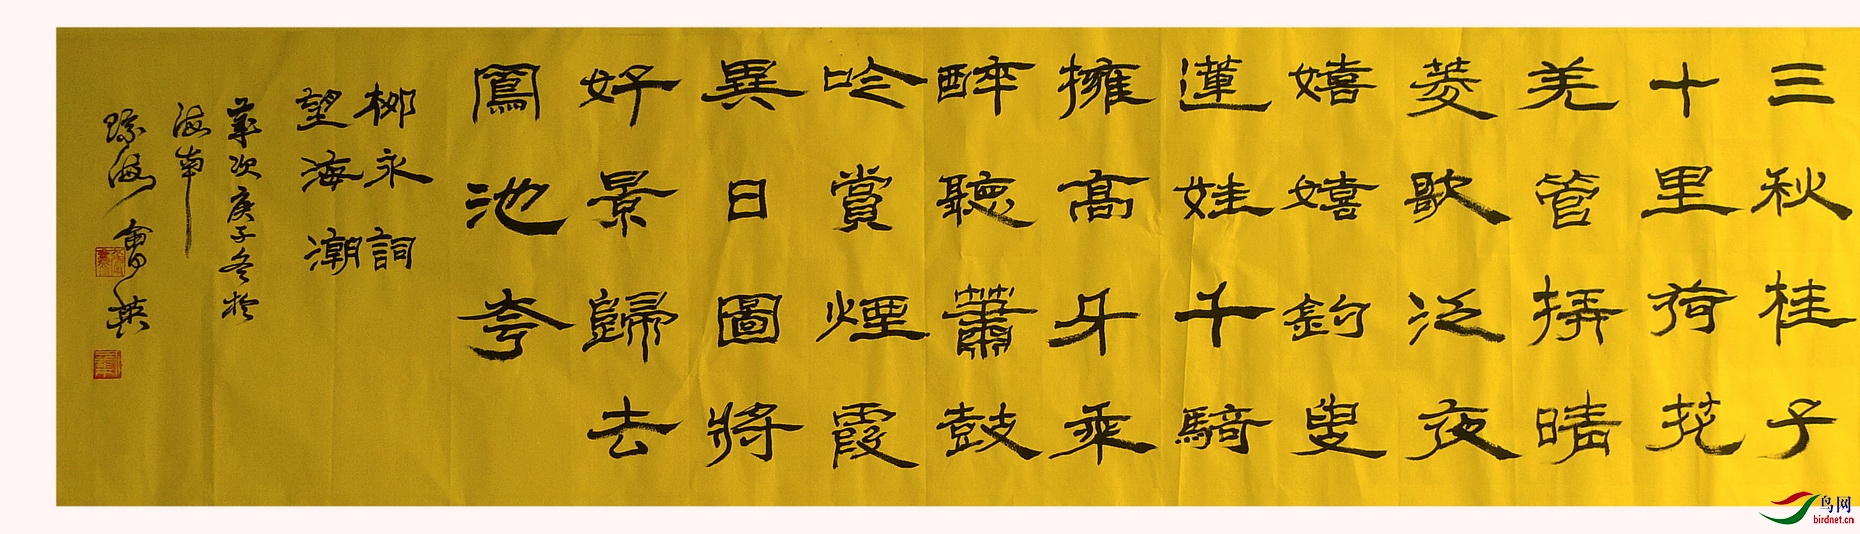 三秋桂子
十里荷花
羌管挵晴
菱歌泛夜
嬉嬉釣叟
蓮娃千騎
擁高牙乘
醉聽簫鼓
吟賞煙霞
異日圖將
好景歸去
鳳池夸
柳永詞
望海潮
歲次庚子冬於
海南
鸟网
birdnet.cn